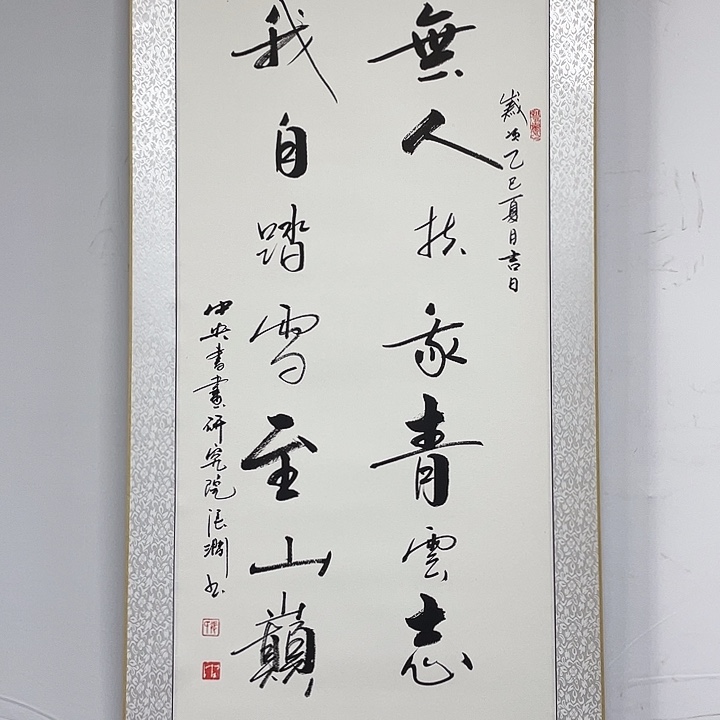 歲次乙巳夏月吉日
無人扶我青雲志
我自踏雪至山巔
中央書畫研究院 书